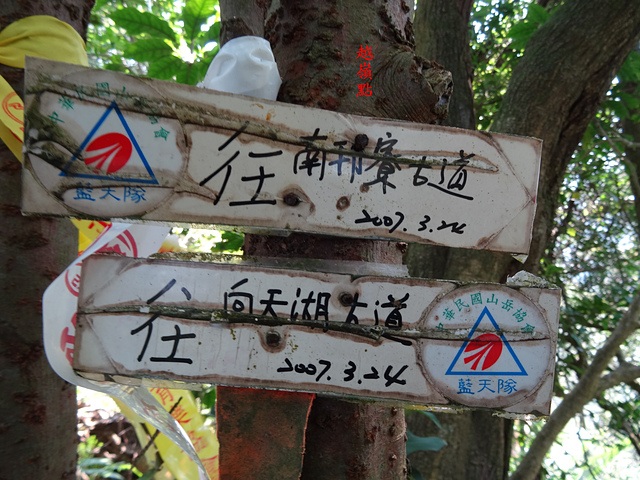 中華民國山岳協會
藍天隊
往 南邦寮古道
2007.3.24
往 向天湖古道
2007.3.24
中華民國山岳協會
藍天隊